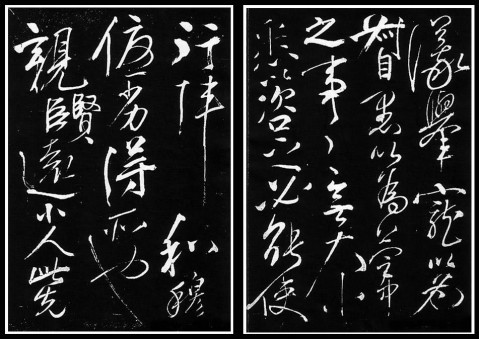 議舉寵以為
督愚以為營中
之事々無大小
悉以咨之必能使
行陣和穆
優劣得所也
親賢遠小人此先